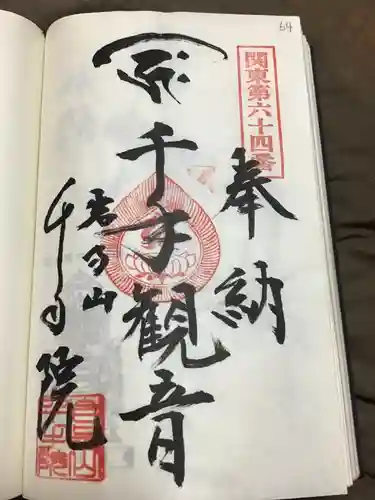 64
関東第六十四番
奉納
千手観音
岩
山
院